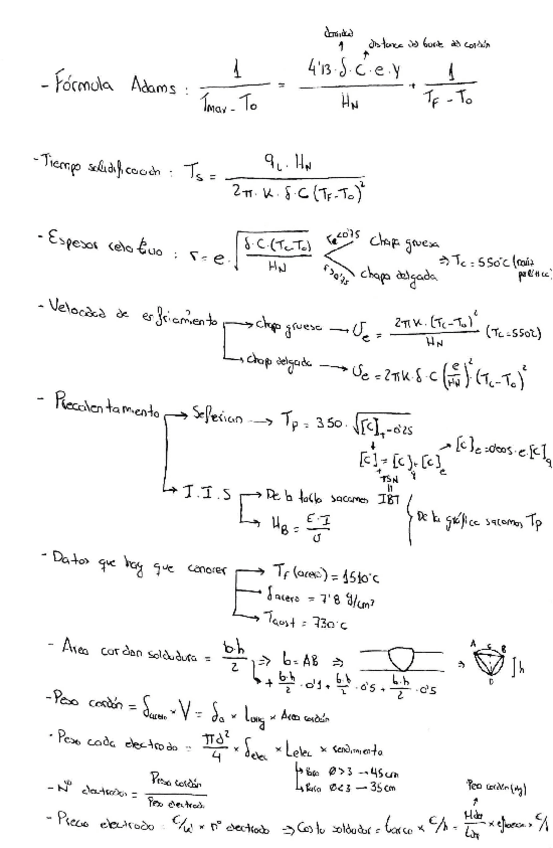 densidad
distancia del borde del cordón
- Fórmula Adams : 1 / (Tmax - To) = (4'13 · δ · C · e · Y) / HN + 1 / (TF - To)
- Tiempo solidificación : Ts = (qL · HN) / (2π · K · δ · C (TF - To)²)
- Espesor relativo : r = e · √(δ · C · (Tc - To) / HN)
r<0'75 chapa gruesa
r>0'75 chapa delgada
⇒ Tc = 550°C (
- Velocidad de enfriamiento → chapa gruesa → Ue = (2πK · (Tc - To)²) / HN (Tc = 550°C)
→ chapa delgada → Ue = 2πK · δ · C (e / HN)² · (Tc - To)²
- Precalentamiento → Seferian → Tp = 350 · √([C]T - 0'25)
[C]T = [C]q + [C]e → [C]e = 0'005 · e · [C]q
→ I.I.S → De la tabla sacamos TSN = IBT
→ HB = (E · I) / U
De la gráfica sacamos Tp
- Datos que hay que conocer → Tf (acero) = 1510°C
→ δacero = 7'8 g/cm³
→ Taust = 730°C
- Area cordon soldadura = b·h / 2 ⇒ b = AB ⇒
+ b·h/2 · 0'1 + b·h/2 · 0'5 + b·h/2 · 0'5
A S B
D
h
- Peso cordón = δacero × V = δa × Long × Area cordón
- Peso cada electrodo = πd²/4 × δelec × Lelec × rendimiento
→ Para Ø>3 → 45cm
→ Para Ø<3 → 35cm
- Nº electrodos = Peso cordón / Peso electrodo
Peso cordón (kg)
- Precio electrodo = €/ud × nº electrodo ⇒ Coste soldador = tarco × €/h =